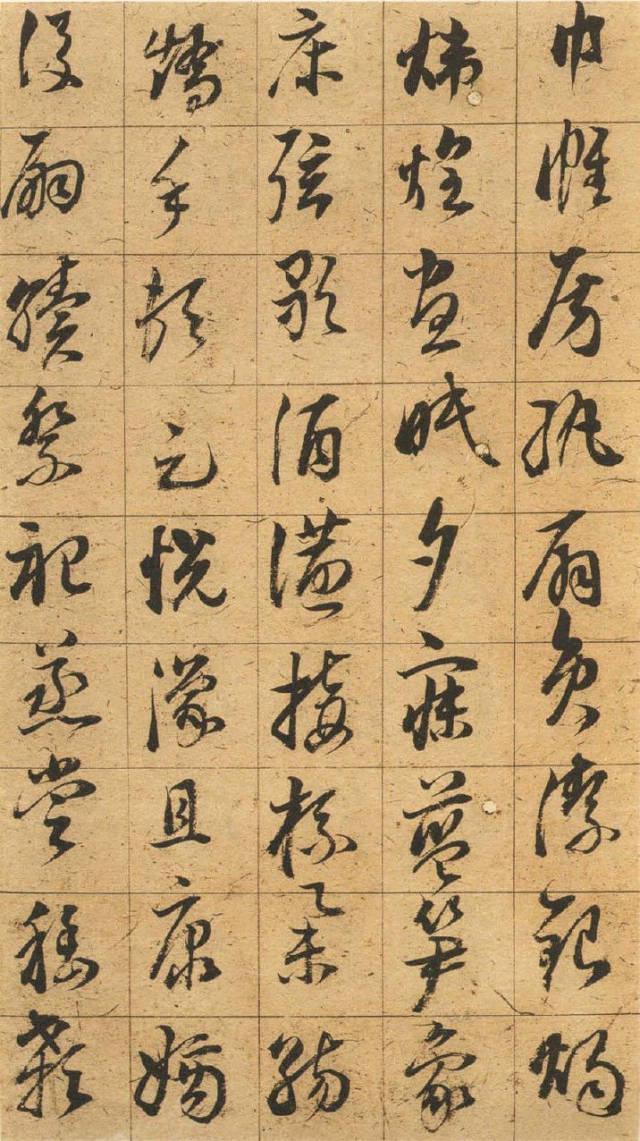 巾帷房紈扇員潔銀燭
煒煌晝眠夕寐藍筍象
床弦歌酒讌接杯舉觴
矯手頓足悅豫且康嫡
後嗣續祭祀蒸嘗稽顙